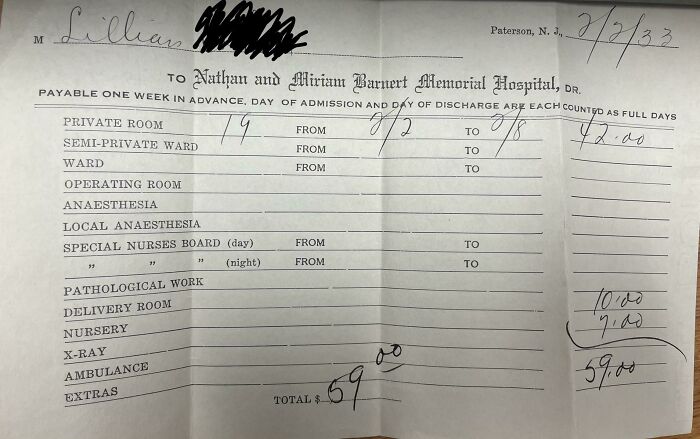 M Lillian Paterson, N. J., 2/2/33
TO Nathan and Miriam Barnert Memorial Hospital, DR.
PAYABLE ONE WEEK IN ADVANCE, DAY OF ADMISSION AND DAY OF DISCHARGE ARE EACH COUNTED AS FULL DAYS
PRIVATE ROOM 19 FROM 2/2 TO 2/8 42.00
SEMI-PRIVATE WARD FROM TO
WARD FROM TO
OPERATING ROOM
ANAESTHESIA
LOCAL ANAESTHESIA
SPECIAL NURSES BOARD (day) FROM TO
„ „ „ (night) FROM TO
PATHOLOGICAL WORK
DELIVERY ROOM 10.00
NURSERY 7.00
X-RAY
AMBULANCE 59.00
EXTRAS
TOTAL $ 59 00